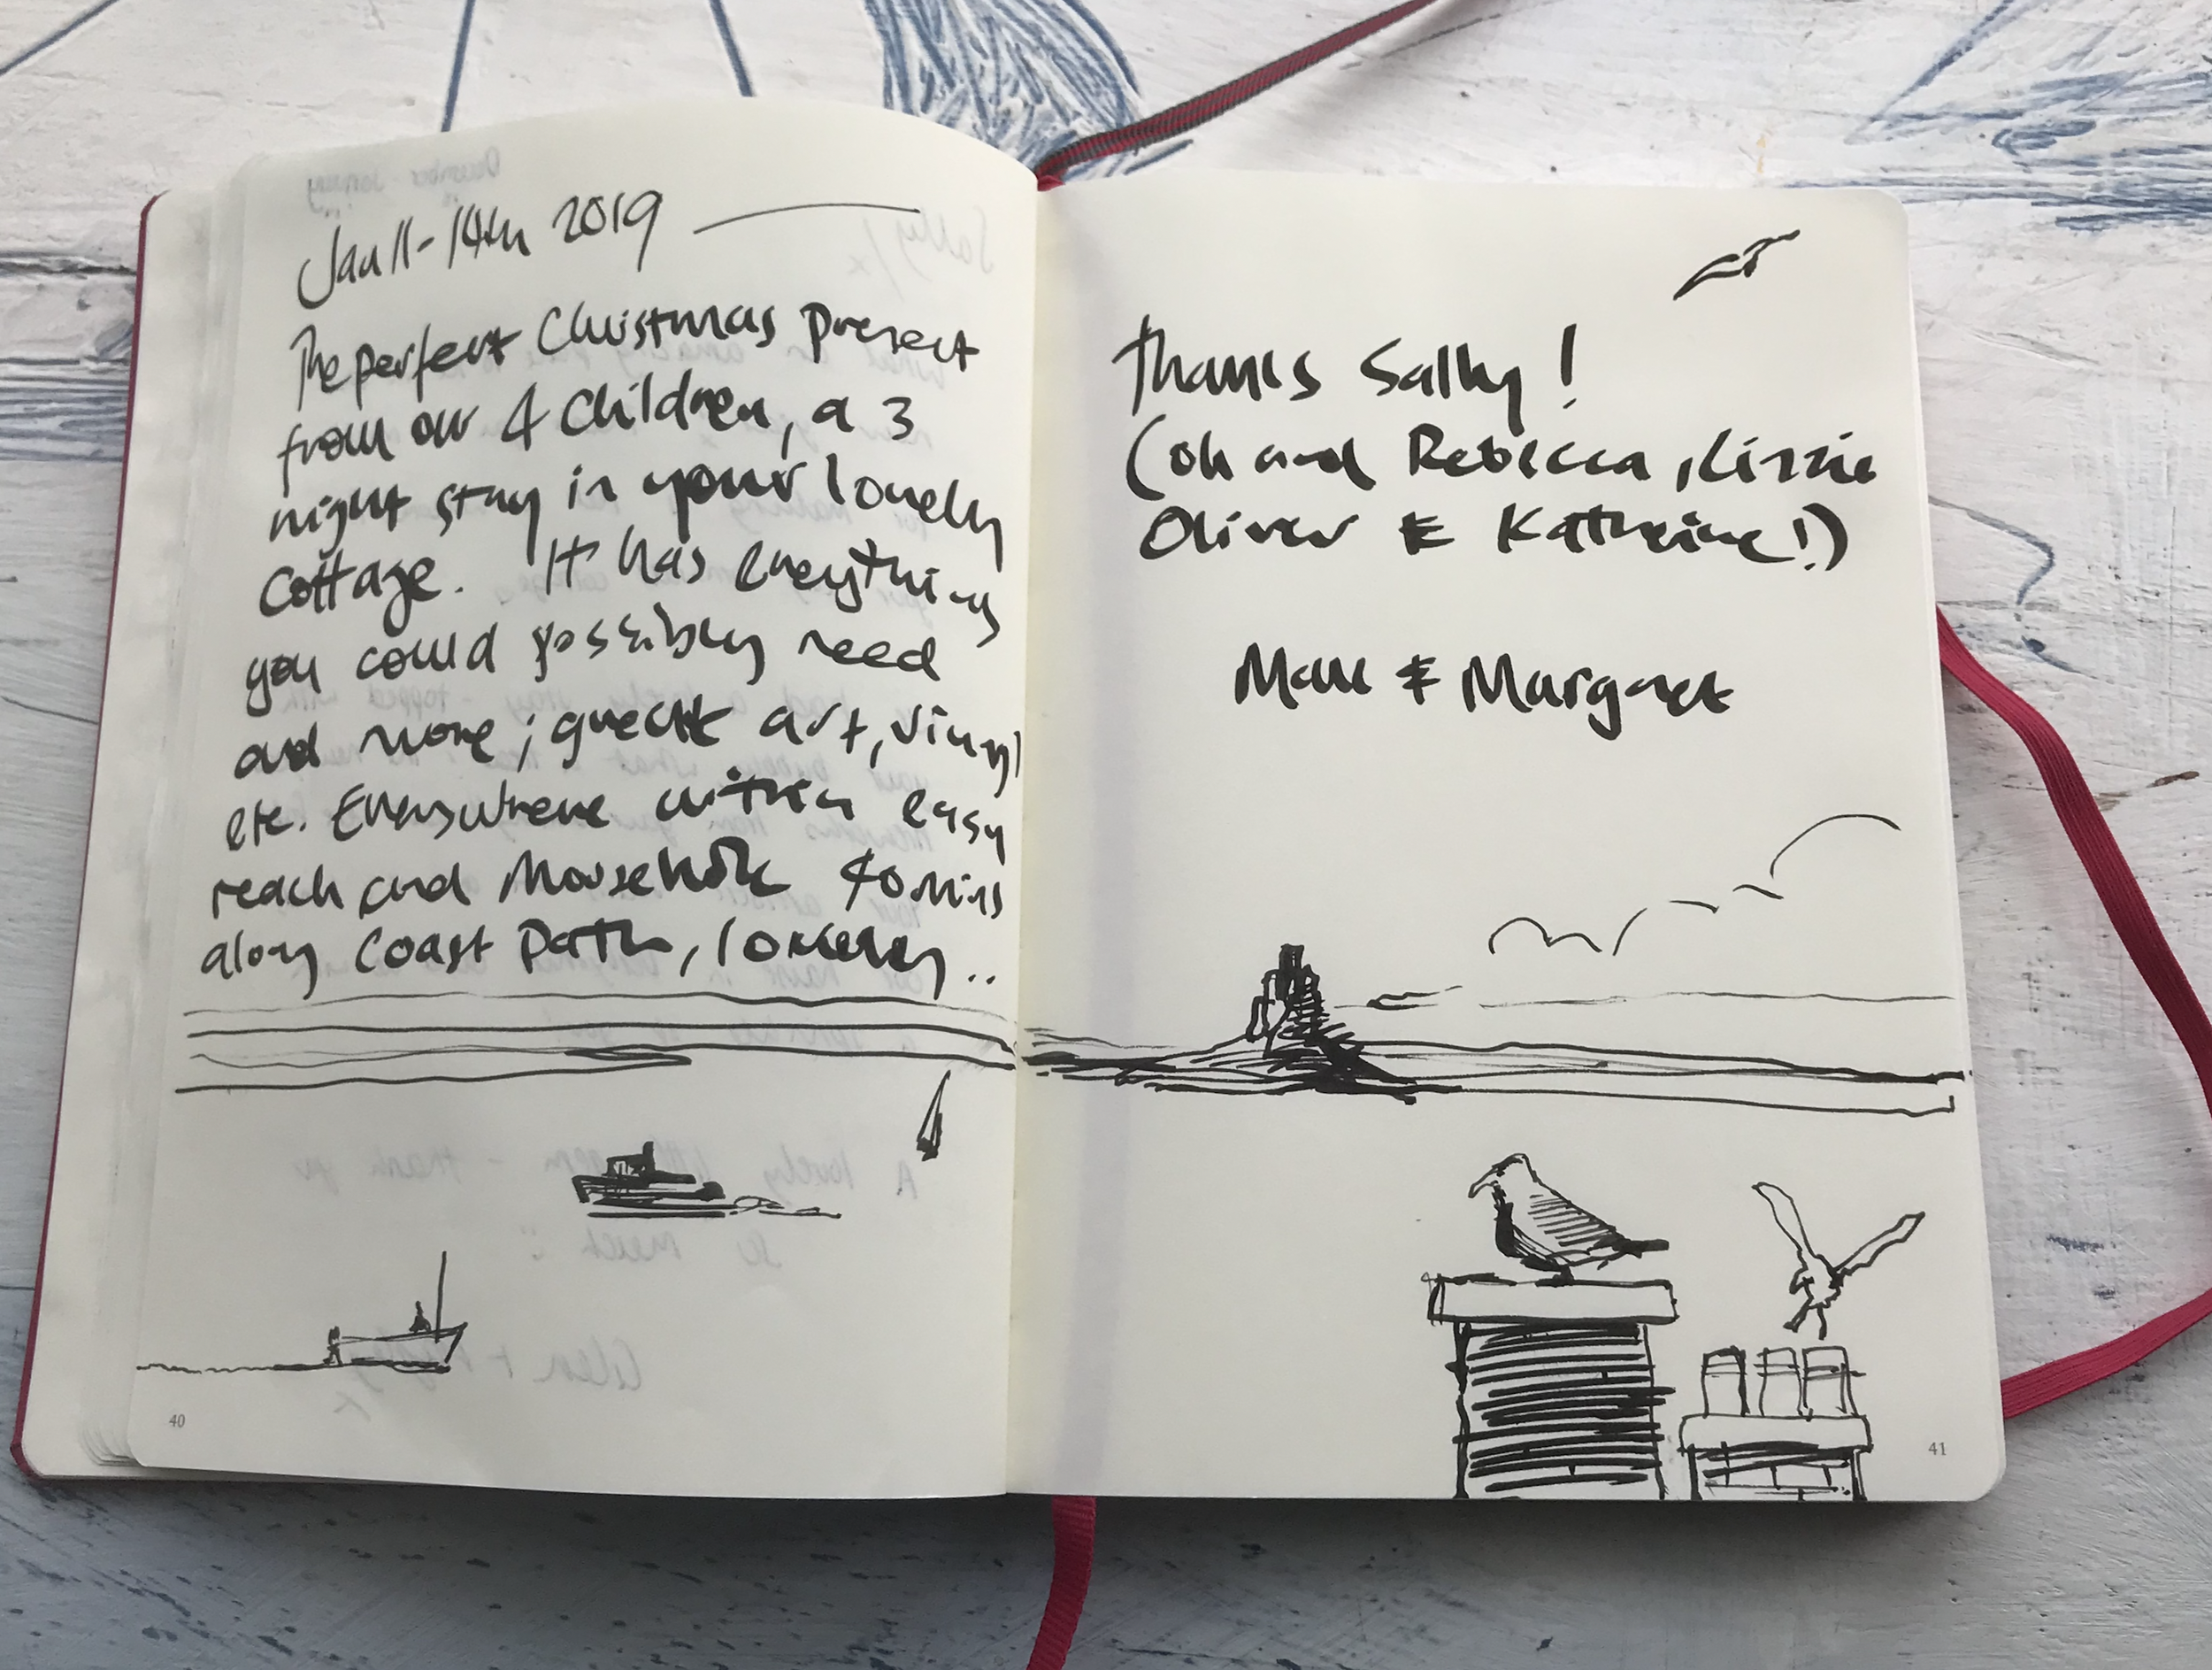 Jan 11-14th 2019
The perfect Christmas present
from our 4 children, a 3
night stay in your lovely
cottage. It has everything
you could possibly need
and more; great art, vinyl
etc. Everywhere within easy
reach and Mousehole 40 mins
along Coast Path, lovely..
40
Thanks Sally!
(oh and Rebecca, Lizzie
Oliver & Katherine!)
& Margaret
41